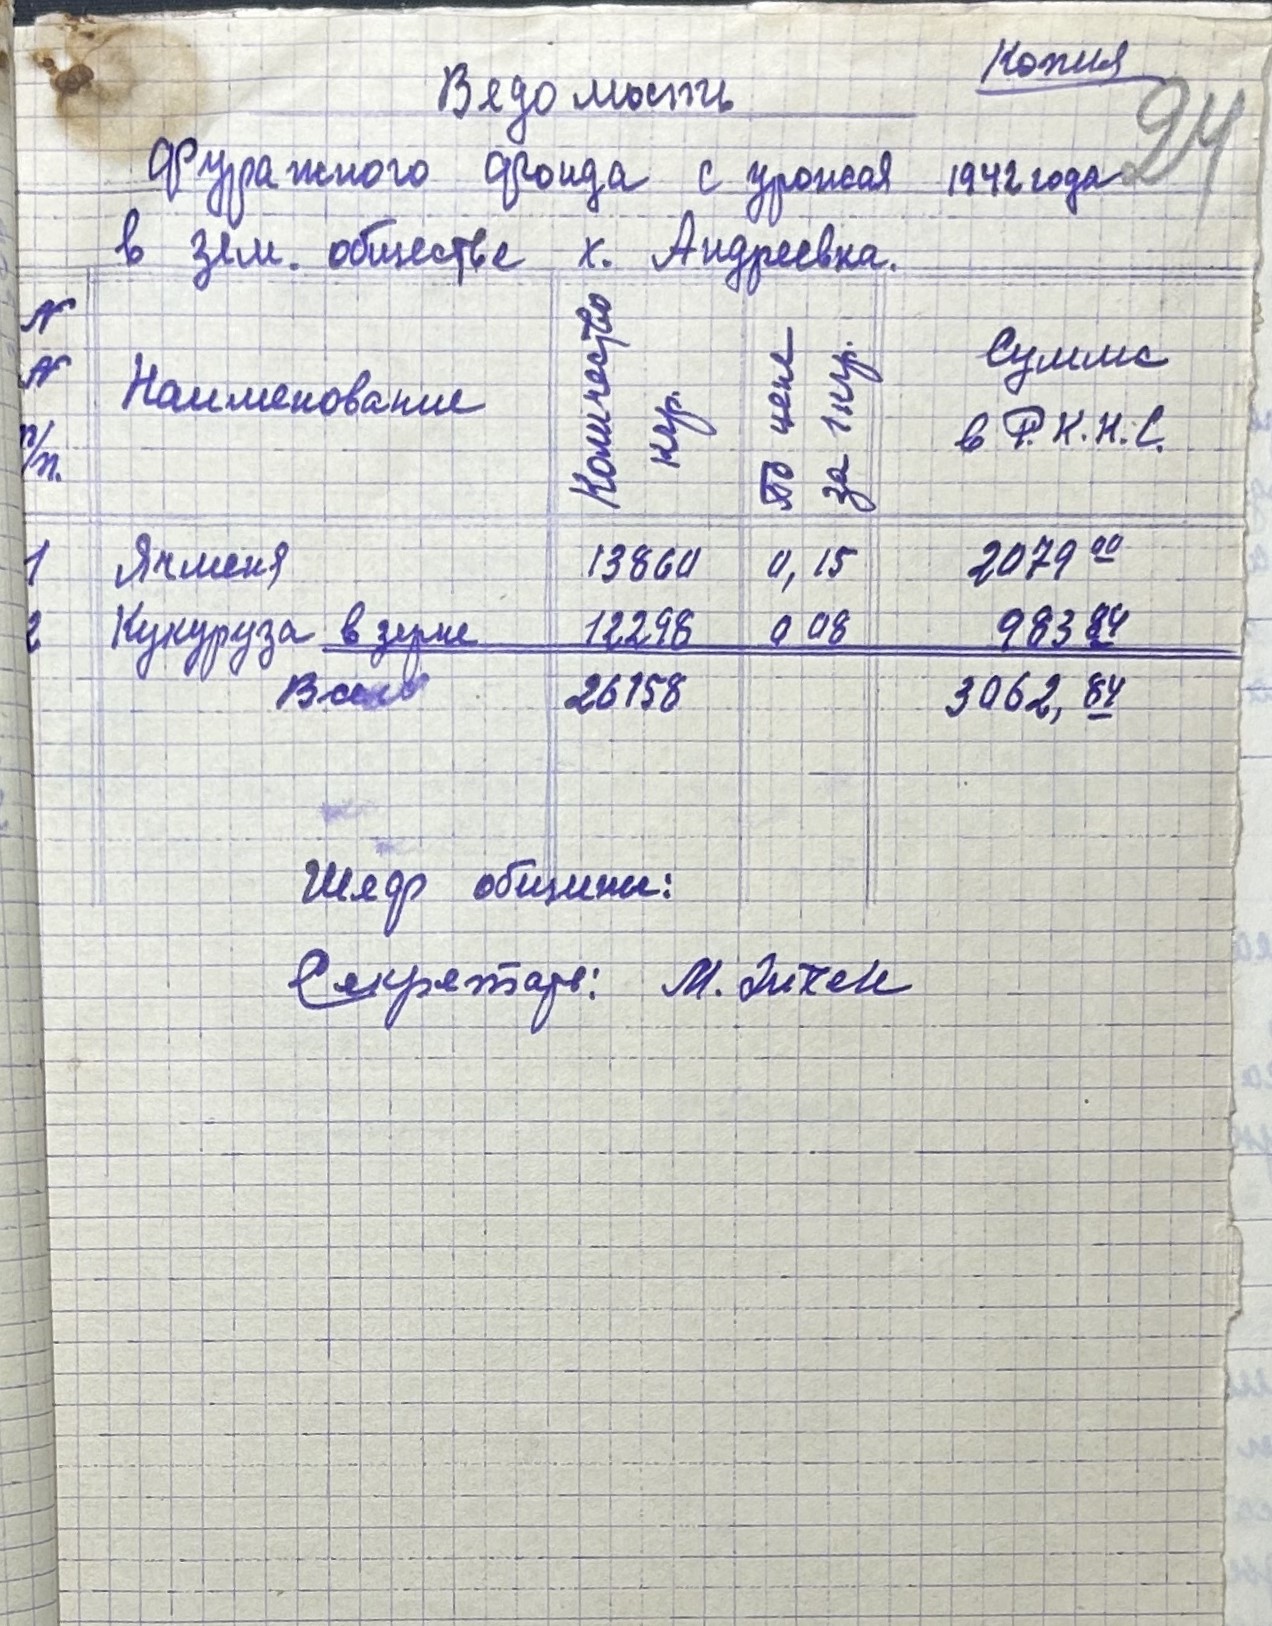 Копия
24
Вядомость
Фуражного фонда с урожая 1942 года
в зем. обществе х. Андреевка.
N N п/п. Наименование Количество кгр. По цене за 1 кгр. Сумма в Р.К.Н.С.
1 Ячменя 13860 0,15 2079 00
2 Кукуруза в зерне 12298 0 08 983 84
Всего 26158 3062, 84
Шядр общины:
Секрятарь: М.